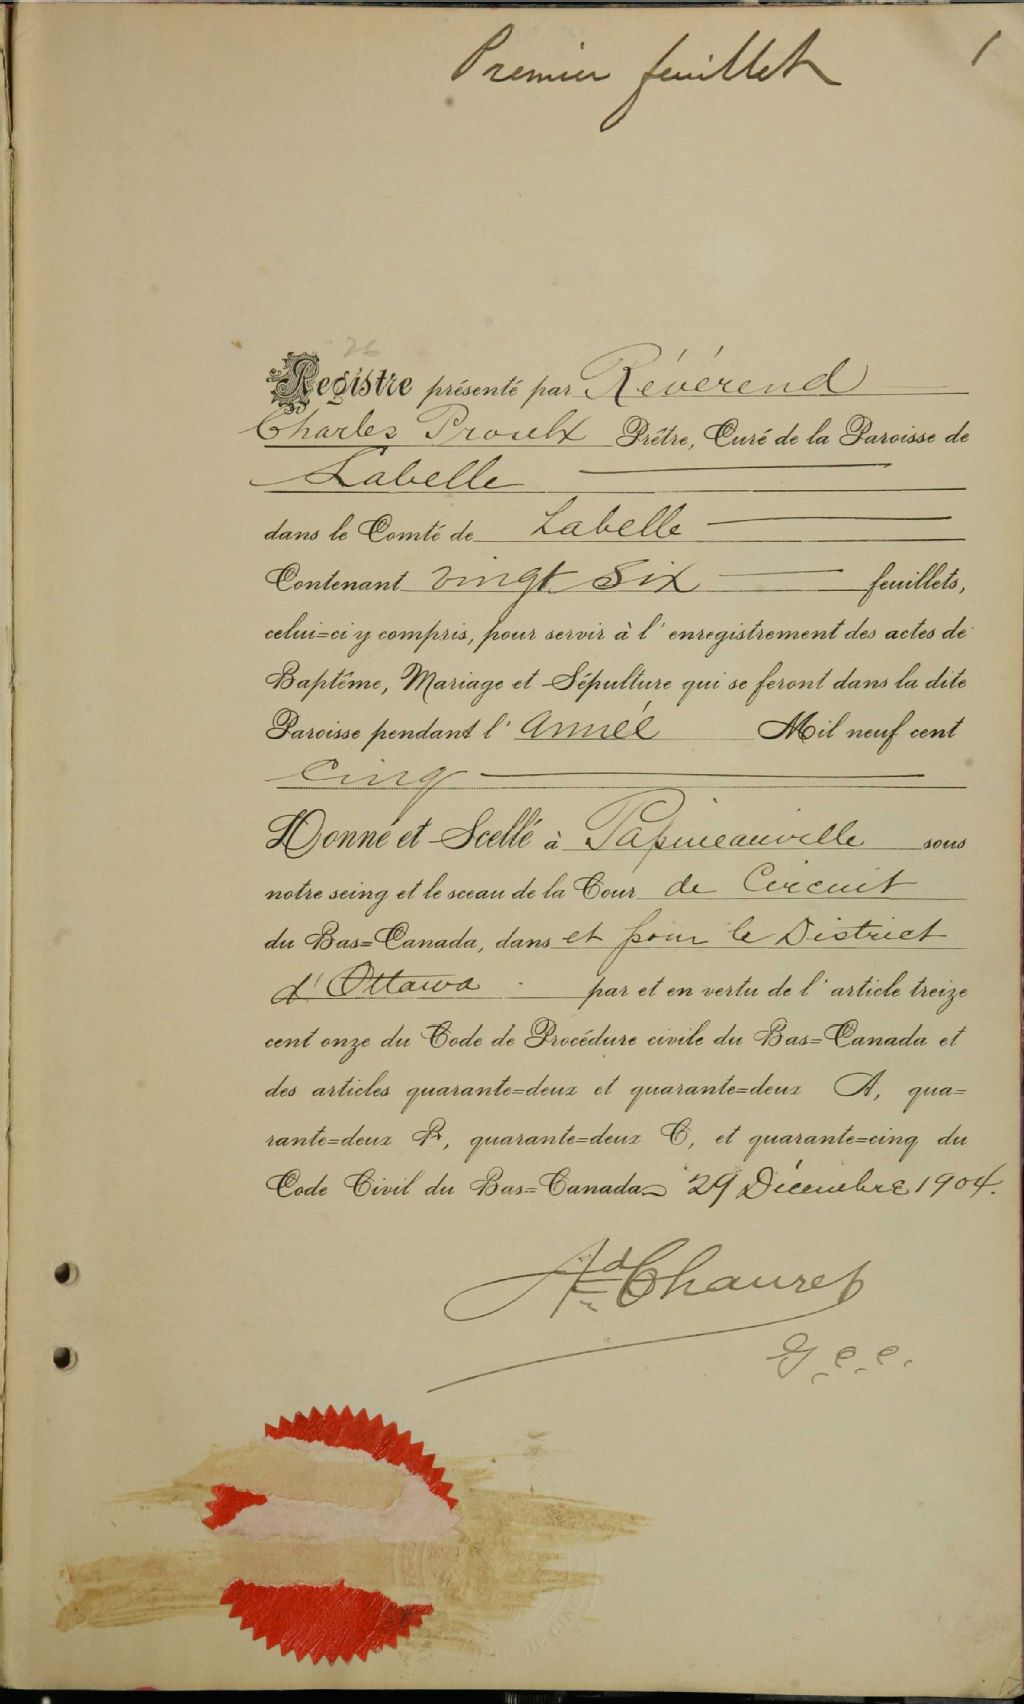 Premier feuillet
1
26
Registre présenté par Révérend
Charles Proulx Prêtre, Curé de la Paroisse de
Labelle
dans le Comté de Labelle
Contenant vingt six feuillets,
celui=ci y compris, pour servir à l'enregistrement des actes de
Baptême, Mariage et Sépulture qui se feront dans la dite
Paroisse pendant l'année Mil neuf cent
cinq
Donné et Scellé à Papineauville sous
notre seing et le sceau de la Cour de Circuit
du Bas=Canada, dans et pour le District
d'Ottawa par et en vertu de l'article treize
cent onze du Code de Procédure civile du Bas=Canada et
des articles quarante=deux et quarante=deux A, qua=
rante=deux B, quarante=deux C, et quarante=cinq du
Code Civil du Bas=Canada 29 Décembre 1904.
Ad Chauret
G.C.C.